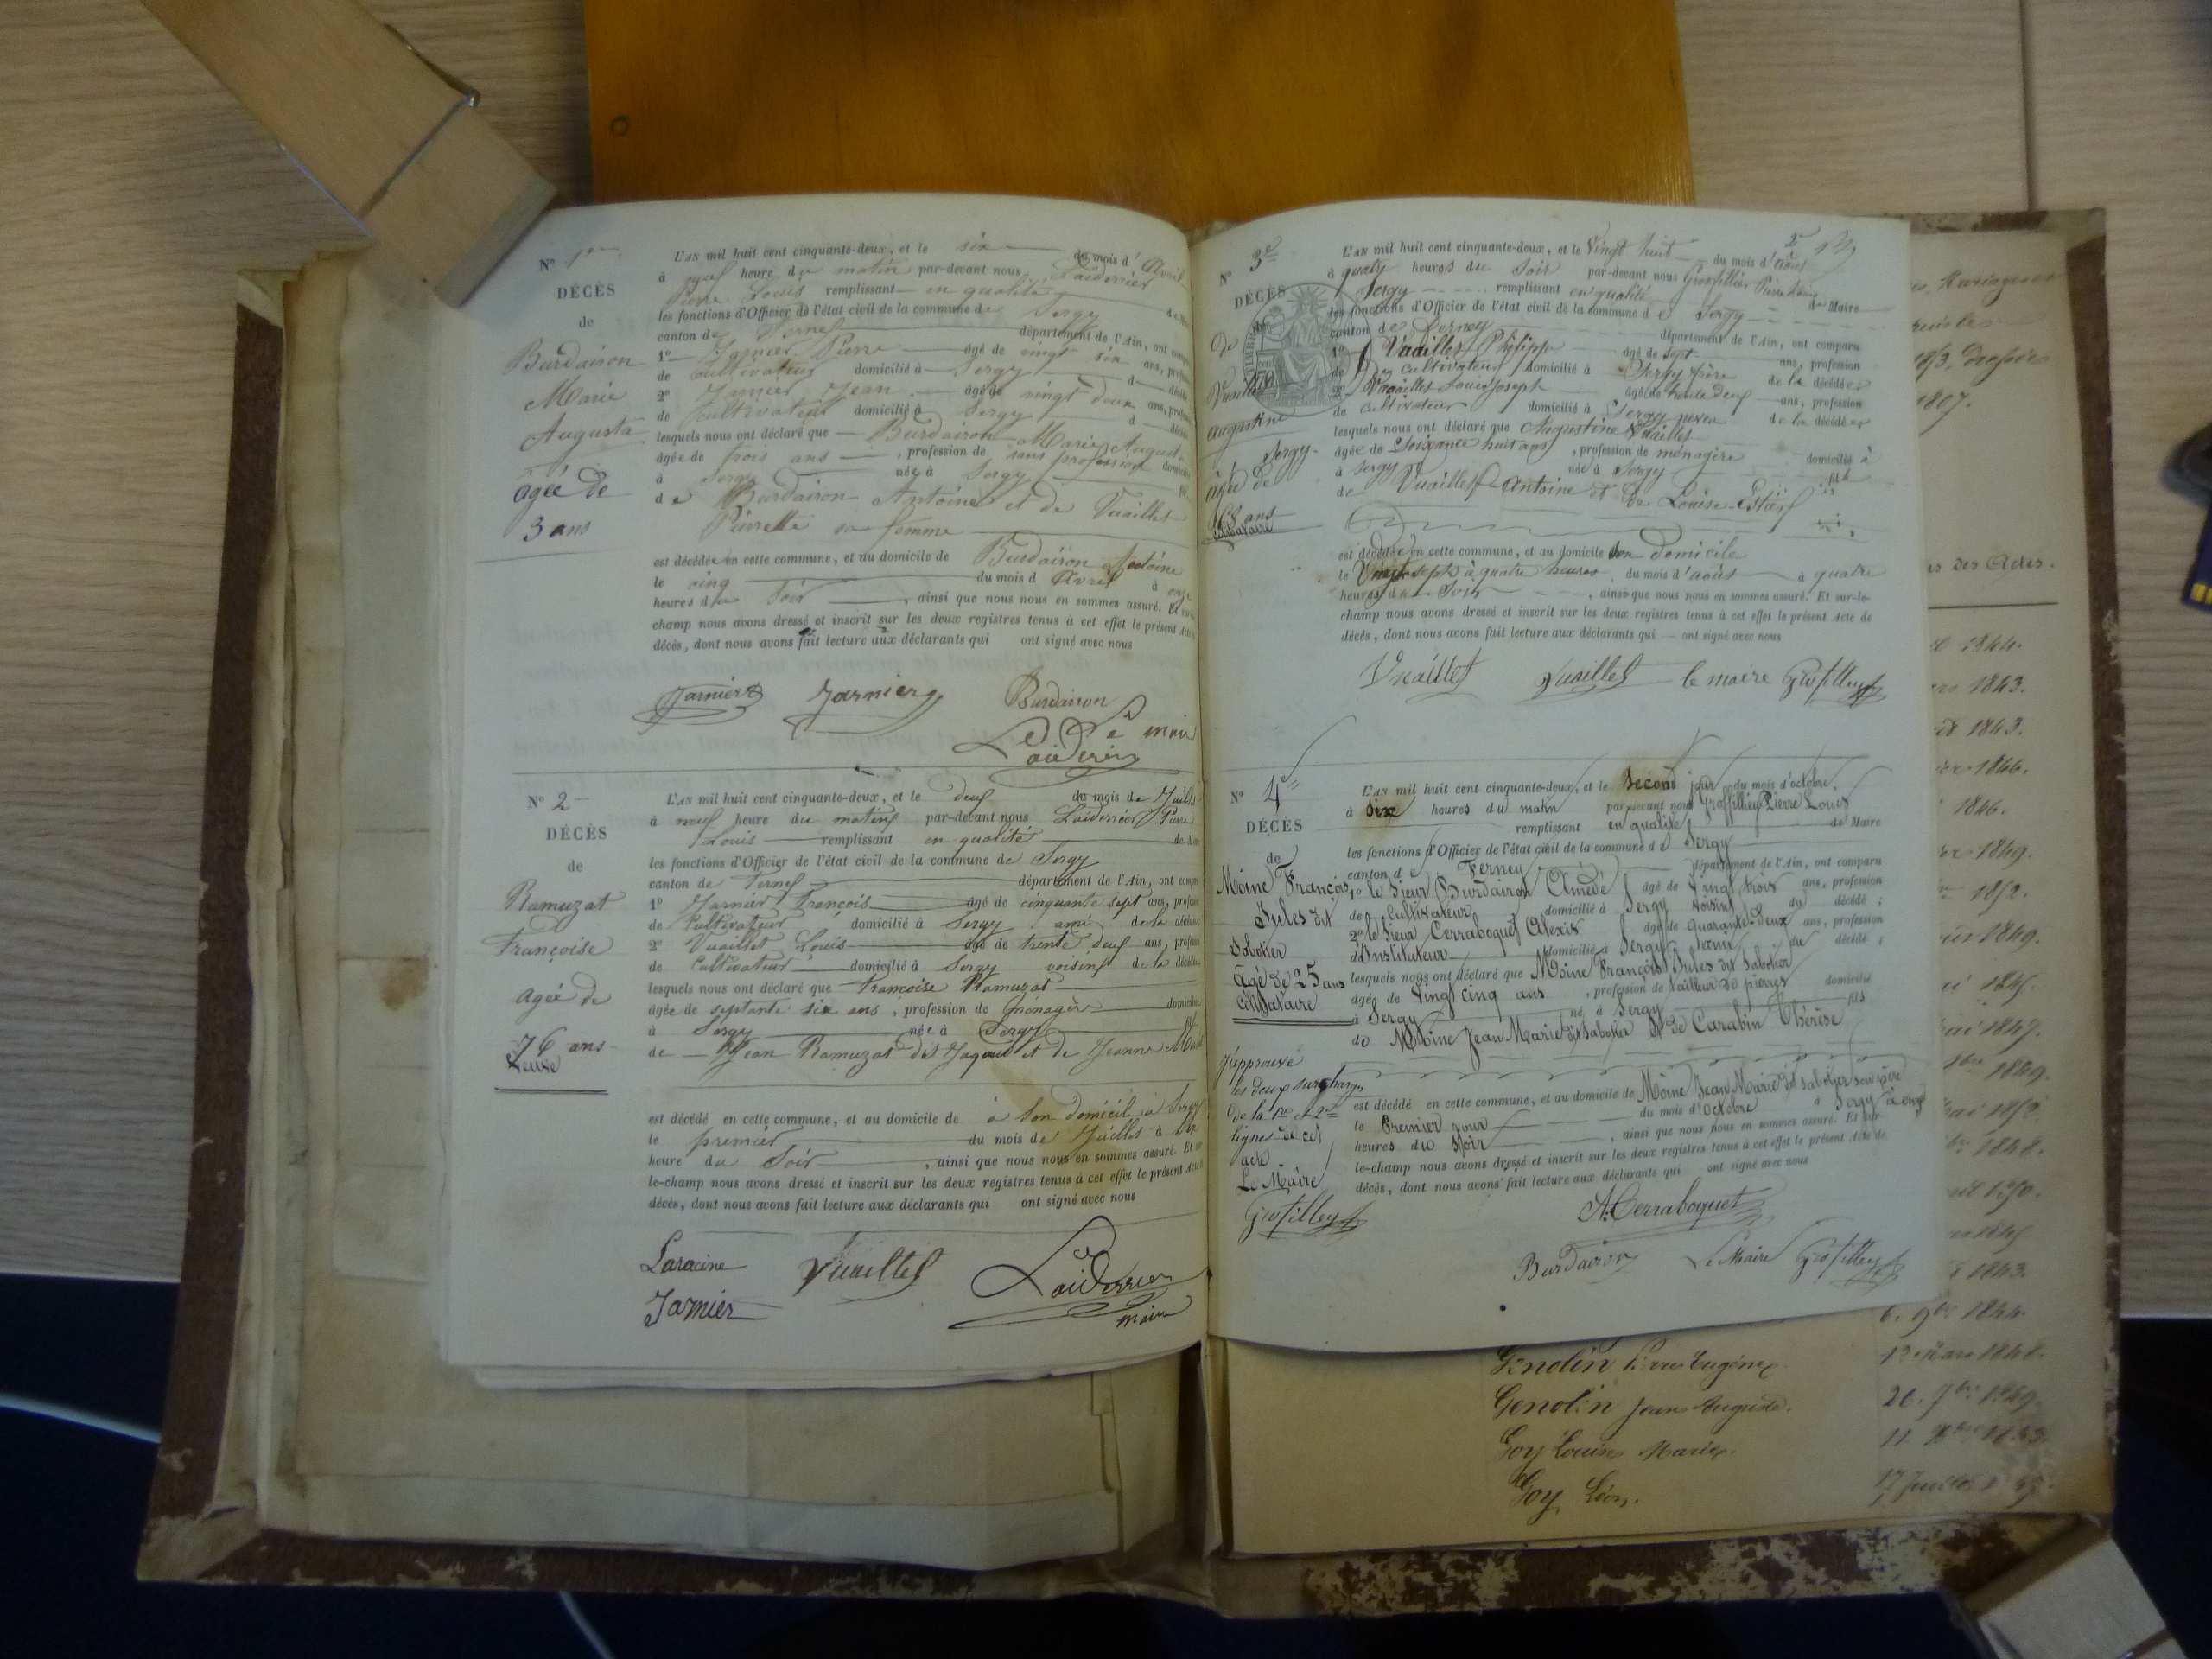 N° 1er
DÉCÈS
de
Burdairon
Marie
Augusta
âgée de
3 ans
L'AN mil huit cent cinquante-deux, et le six du mois d'Avril
à neuf heure du matin par-devant nous Laiderrier
Pierre Louis remplissant en qualité de
les fonctions d'Officier de l'état civil de la commune de Sergy
canton de Fernex département de l'Ain, ont
1° Jarnier Pierre âgé de vingt six ans,
de Cultivateur domicilié à Sergy
2° Jarnier Jean âgé de vingt deux ans,
de Cultivateur domicilié à Sergy
lesquels nous ont déclaré que Burdairon Marie
âgée de trois ans, profession de sans profession
à Sergy née à Sergy
de Burdairon Antoine et de Vuaillet
Pierrette sa femme
est décédée en cette commune, et au domicile de Burdairon Antoine
le cinq du mois d Avril à onze
heures du Soir, ainsi que nous nous en sommes assuré. Et
champ nous avons dressé et inscrit sur les deux registres tenus à cet effet le présent Acte
décès, dont nous avons fait lecture aux déclarants qui ont signé avec nous
Jarnier Jarnier Burdairon
Le maire
Laiderrier
N° 2
DÉCÈS
de
Ramuzat
Françoise
agée de
76 ans
Veuve
L'AN mil huit cent cinquante-deux, et le deux du mois de Juillet
à neuf heure du matin par-devant nous Laiderrier Pierre
Louis remplissant en qualité de
les fonctions d'Officier de l'état civil de la commune de Sergy
canton de Fernex département de l'Ain, ont
1° Jarnier François âgé de cinquante sept ans,
de Cultivateur domicilié à Sergy ami de la
2° Vuaillet Louis âgé de trente deux ans,
de Cultivateur domicilié à Sergy voisins de la
lesquels nous ont déclaré que Françoise Ramuzat
âgée de septante six ans, profession de ménagère
à Sergy née à Sergy
de Jean Ramuzat dit et de Jeanne
est décédé en cette commune, et au domicile de à Son domicile à Sergy
le premier du mois de Juillet à
heure du Soir, ainsi que nous nous en sommes assuré. Et
le-champ nous avons dressé et inscrit sur les deux registres tenus à cet effet le présent Acte
décès, dont nous avons fait lecture aux déclarants qui ont signé avec nous
Laracine Vuaillet Laiderrier
Jarnier maire
N° 3e
DÉCÈS
de
Vuaillet
augustine
Sergy
âgée de
68 ans
célibataire
L'AN mil huit cent cinquante-deux, et le Vingt huit du mois d'août
à quatre heures du Soir par-devant nous Grosfilley Pierre Louis
Sergy remplissant en qualité de Maire
les fonctions d'Officier de l'état civil de la commune de Sergy
canton de Ferney département de l'Ain, ont comparu
1° Vuaillet Philippe âgé de sept ans, profession
de Cultivateur domicilié à Sergy frère de la décédée
2° Vuaillet Louis Joseph âgé de trente deux ans, profession
de Cultivateur domicilié à Sergy neveu de la décédée
lesquels nous ont déclaré que Augustine Vuaillet
âgée de Soixante huit ans, profession de ménagère domicilié à
à Sergy née à Sergy
de Vuaillet Antoine et de Louise Estier
est décédée en cette commune, et au domicile son domicile
le Vingt sept à quatre heures du mois d'août à quatre
heures du Soir, ainsi que nous nous en sommes assuré. Et sur-le-
champ nous avons dressé et inscrit sur les deux registres tenus à cet effet le présent Acte de
décès, dont nous avons fait lecture aux déclarants qui ont signé avec nous
Vuaillet Vuaillet le maire Grosfilley
N° 4e
DÉCÈS
de
Moine François
Jules dit
Sabotier
Agé de 25 ans
Célibataire
J'approuve
les deux surcharges
de la 1re et 2me
lignes de cet
acte
Le Maire
Grosfilley
L'AN mil huit cent cinquante-deux, et le Second jour du mois d'octobre,
à Six heures du matin par-devant nous Grosfilley Pierre Louis
remplissant en qualité de Maire
les fonctions d'Officier de l'état civil de la commune de Sergy
canton de Ferney département de l'Ain, ont comparu
1° le Sieur Burdairon Amédé âgé de Vingt trois ans, profession
de Cultivateur domicilié à Sergy voisins du décédé;
2° le Sieur Cerraboquet Alexis âgé de quarante-deux ans, profession
d'Instituteur domicilié à Sergy l'ami du décédé;
lesquels nous ont déclaré que Moine François Jules dit Sabotier
âgée de Vingt cinq ans, profession de Tailleur de pierres domicilié
à Sergy né à Sergy fils
de Moine Jean Marie dit Sabotier et de Carabin Thérèse
est décédé en cette commune, et au domicile de Moine Jean Marie dit sabotier son père
le Premier jour du mois d'Octobre à Sergy à onze
heures du Soir, ainsi que nous nous en sommes assuré. Et sur-
le-champ nous avons dressé et inscrit sur les deux registres tenus à cet effet le présent Acte de
décès, dont nous avons fait lecture aux déclarants qui ont signé avec nous
A. Cerraboquet
Burdairon Le Maire Grosfilley
Mariages
1807.
des Actes.
1844.
1843.
1843.
1846.
1846.
1849.
1852.
1849.
1845.
1847.
1849.
1852.
1848.
1850.
1845
1843.
6. 9bre 1844.
Gendin Pierre Eugène 12 Mars 1848.
Gendin Jean Auguste. 26. 7bre 1849.
Goy Louise Marie.
Goy Léon. 17 Juillet